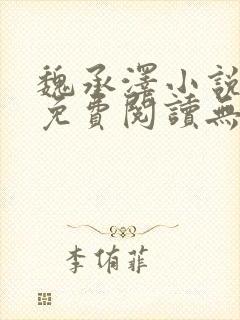 魏承澤小說
免費閱讀無
李侑菲